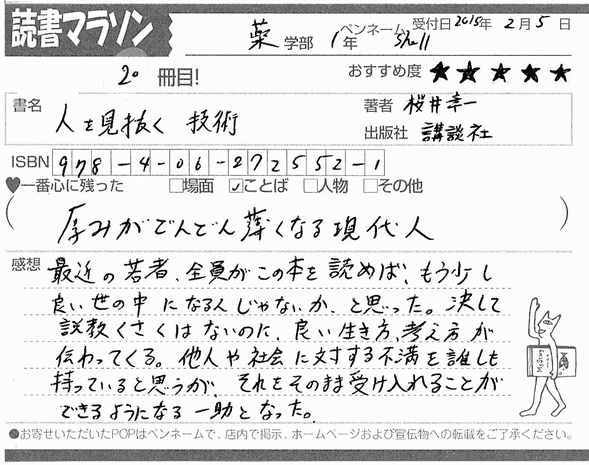 読書マラソン
受付日2015年 2月5日
薬 学部 1年 ペンネーム Shell
20 冊目!
おすすめ度 ★★★★★
書名 人を見抜く 技術
著者 桜井章一
出版社 講談社
ISBN 978-4-06-272552-1
♥一番心に残った □場面 ☑ことば □人物 □その他
(厚みがどんどん薄くなる現代人)
感想 最近の若者、全員がこの本を読めば、もう少し
良い世の中になるんじゃないか、と思った。決して
説教くさくはないのに、良い生き方、考え方が
伝わってくる。他人や社会に対する不満を誰しも
持っていると思うが、それをそのまま受け入れることが
できるようになる一助となった。
●お寄せいただいたPOPはペンネームで、店内で掲示、ホームページおよび宣伝物への転載をご了承ください。